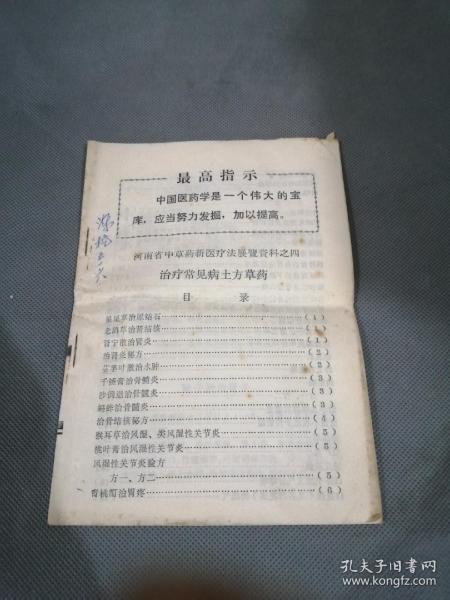 最高指示
中国医药学是一个伟大的宝
库，应当努力发掘，加以提高。
河南省中草药新医疗法展览资料之四
治疗常见病土方草药
目 录
(1)
治肾结核 (1)
治肾炎 (1)
治肾炎秘方 (2)
治水肿 (2)
膏治骨髓炎 (2)
治骨髓炎 (2)
治骨髓炎 (3)
治骨结核秘方 (4)
猴耳草治风湿、类风湿性关节炎 (5)
桃叶膏治风湿性关节炎 (5)
风湿性关节炎验方
方一、方二 (5)
青桃酊治胃疼 (6)
孔夫子旧书网
www.kongfz.com